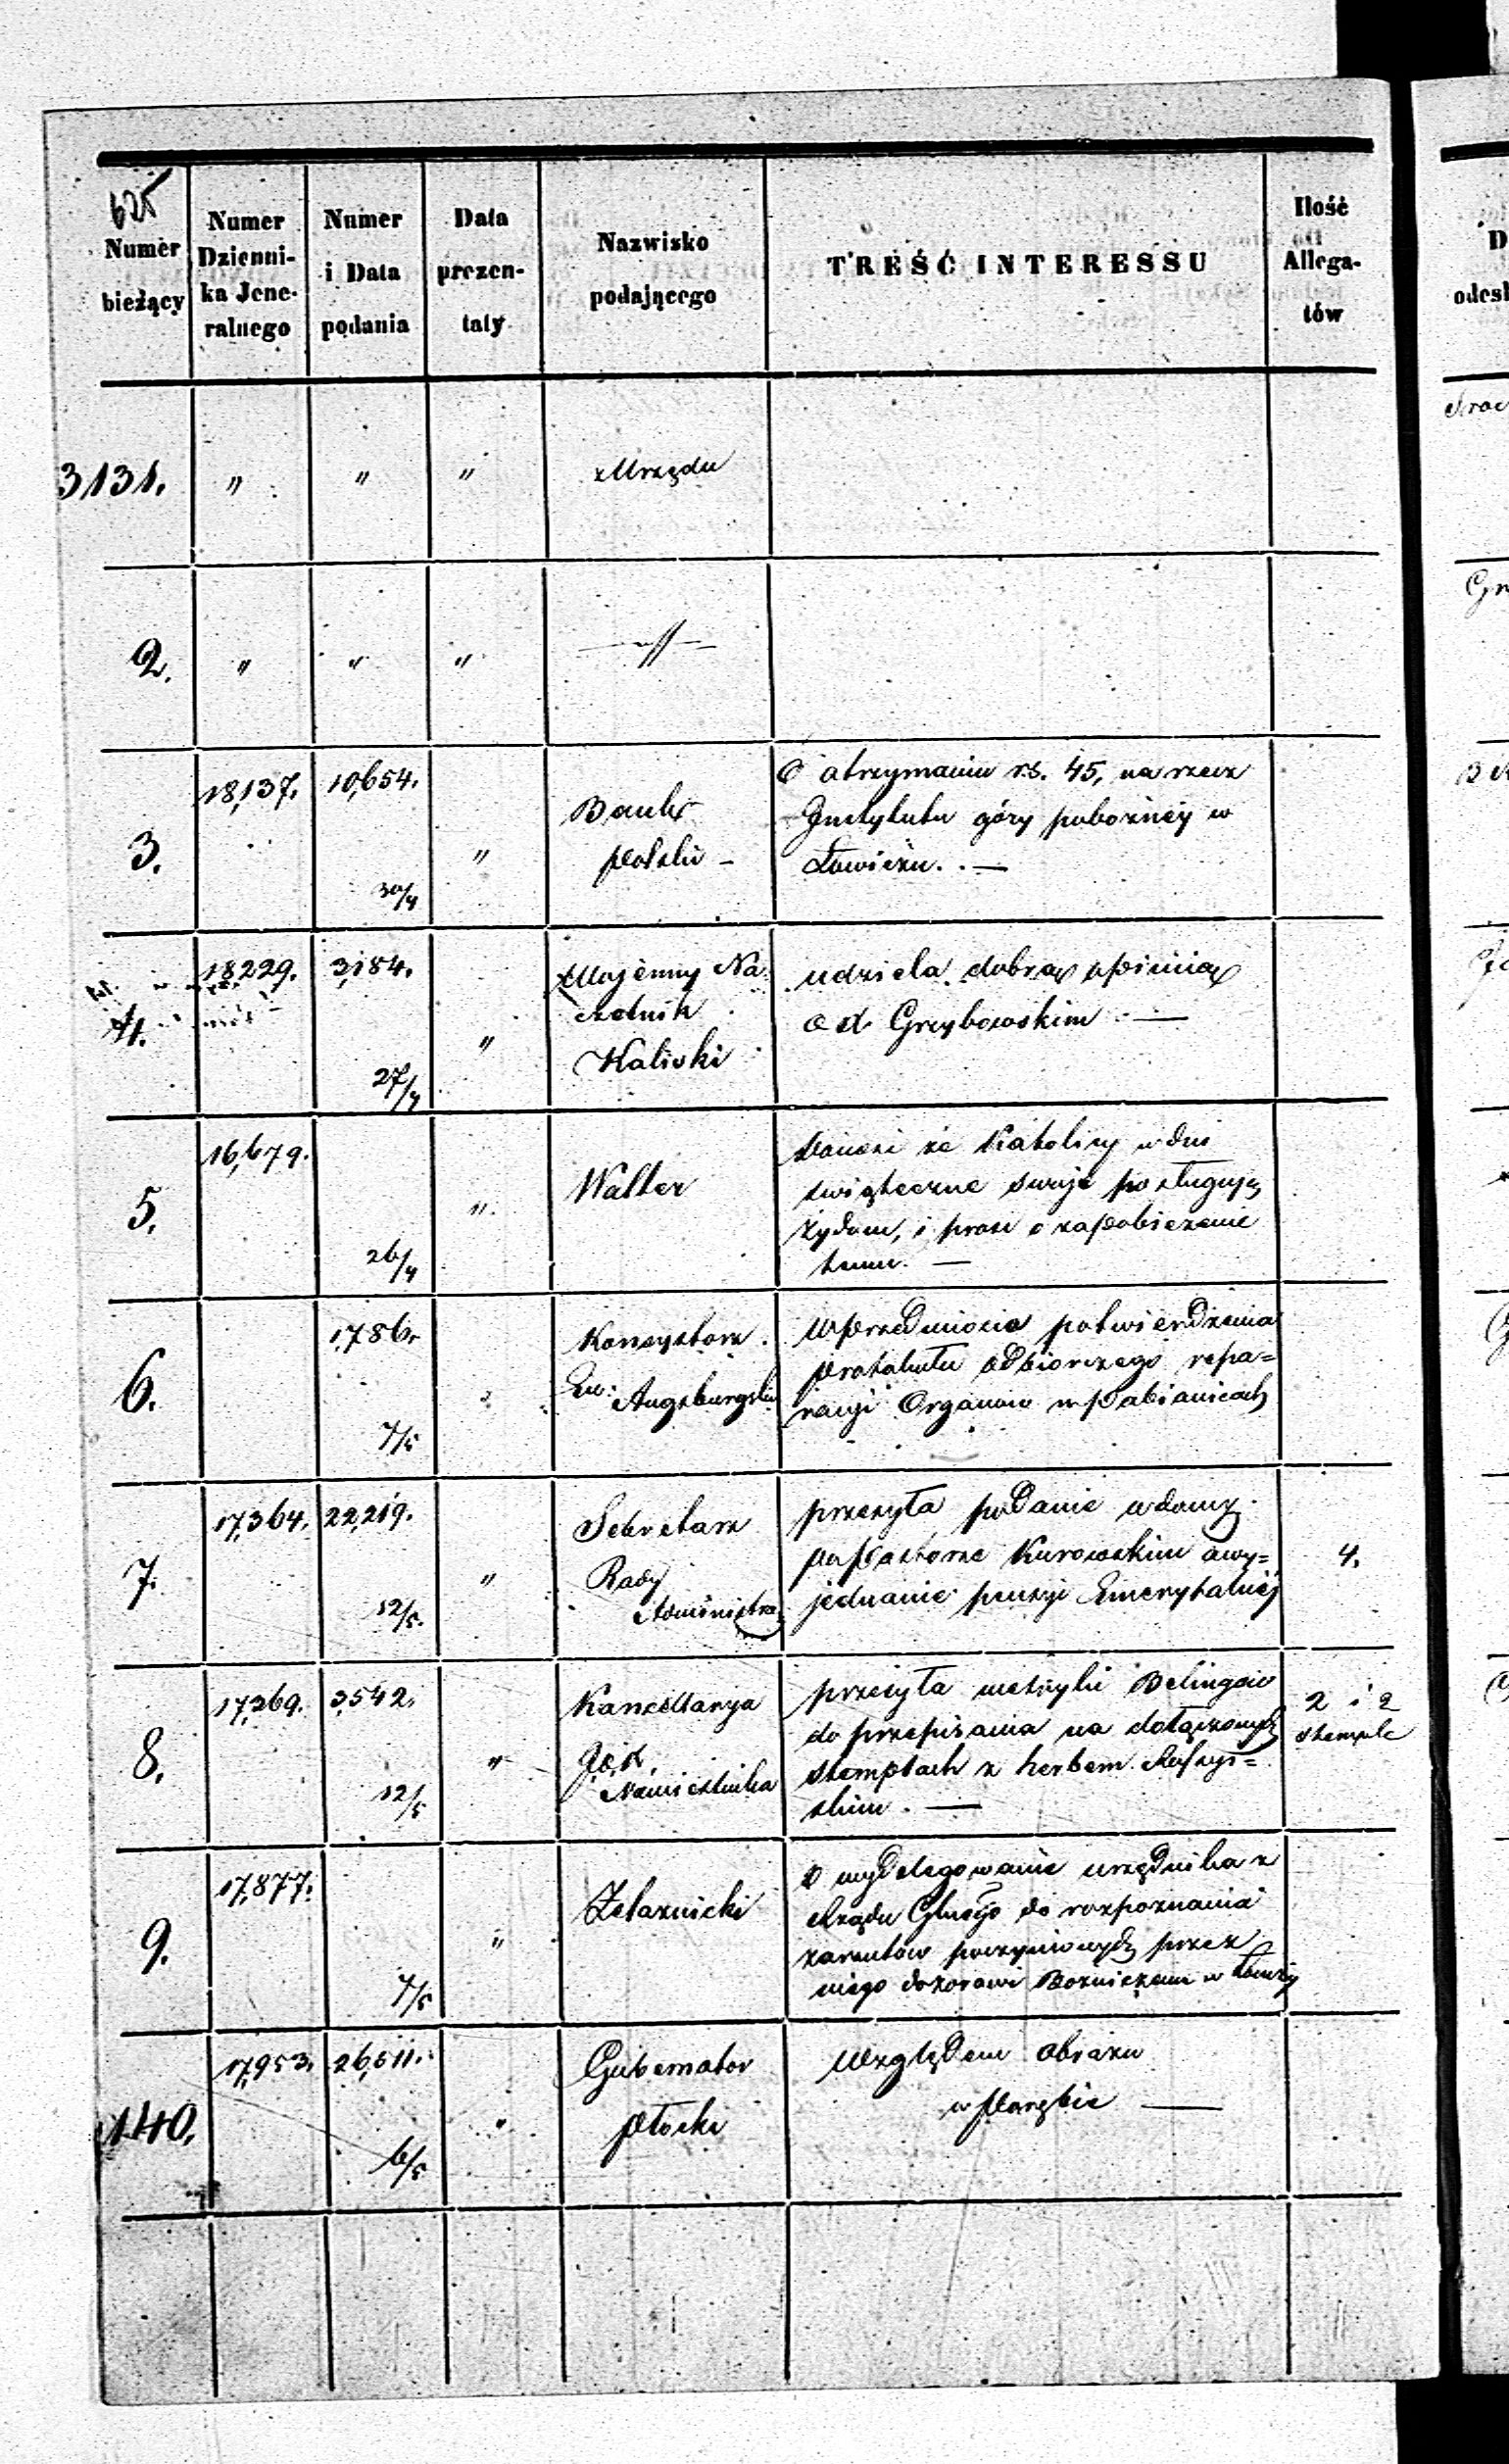 625
Numer bieżący
Numer Dzienni-ka Jene-ralnego
Numer i Data podania
Data prezen-taty
Nazwisko podającego
TREŚĆ INTERESSU
Ilość Allega-tów
3131. " " " z Urzędu
2. " " " —"—
3. 18,137. 10,654. 30/4 "
Bank
Polski –
O otrzymaniu rs. 45, na rzecz
Instytutu góry pobożnéj w
Łowiczu. . —
4. 18229. 3,184. 27/4 "
Wojenny Na
czelnik
Kaliski
udziela dobrą opinią
o Grzybowskim —
5. 16,679. 26/4 "
Walter
Donosi że Katolicy w dni
świąteczne swoje posługują
żydom, i prosi o zapobieżenie
temu. —
6. 1,786. 7/5
Konsystorz
Ew: Augsburgski
W przedmiocie potwierdzenia
protokułu odbiorczego repa=
racyi Organow w Pabianicach
7. 17,364. 22,219. 12/5. "
Sekretarz
Rady
Administra
przesyła podanie wdowy
po Pastorze Kurowskim o wy=
jednanie pensyi Emerytalnéj
4.
8. 17,369. 3,542. 12/5 "
Kancellarya
J.O.X.
Namiestnika
przesyła metryki Belingow
do przepisania na dołączonych
stemplach z herbem Rossyi=
skim. —
2 i 2
stemple
9. 17,877. 7/5 "
Żelaznicki
O wydelegowanie urzędnika z
Rządu Glnego do rozpoznania
zarzutów poczynionych przez
niego dozorowi Bożniczemu w Łomży
140. 17,953. 26,511. 6/5 "
Gubernator
Płocki
Względem obrazu
w Porębie —